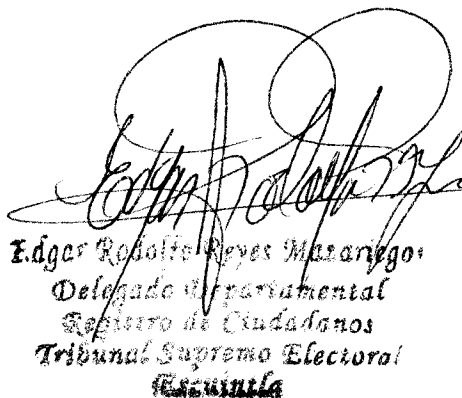 Edgar Rodolfo
Edgar Rodolfo Reyes Mazariegos
Delegado Departamental
Registro de Ciudadanos
Tribunal Supremo Electoral
Escuintla